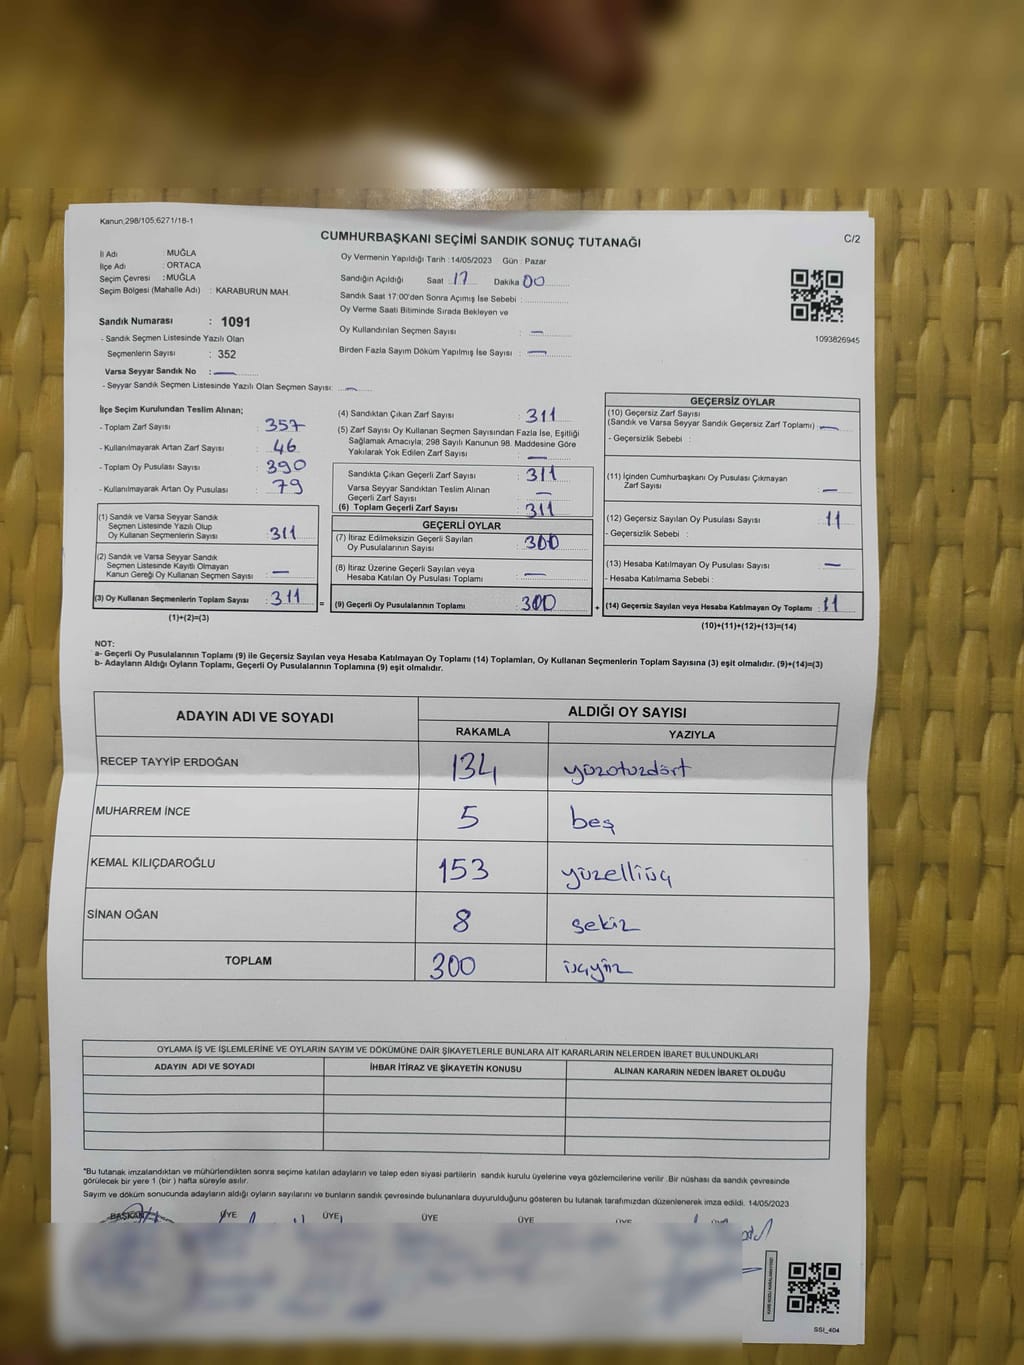 Kanun;298/105;6271/18-1
CUMHURBAŞKANI SEÇİMİ SANDIK SONUÇ TUTANAĞI
C/2
İl Adı : MUĞLA
İlçe Adı : ORTACA
Seçim Çevresi : MUĞLA
Seçim Bölgesi (Mahalle Adı) : KARABURUN MAH.
Oy Vermenin Yapıldığı Tarih : 14/05/2023 Gün : Pazar
Sandığın Açıldığı Saat 17 Dakika 00
Sandık Saat 17:00'den Sonra Açımış İse Sebebi :
Oy Verme Saati Bitiminde Sırada Bekleyen ve
Oy Kullandırılan Seçmen Sayısı : —
Birden Fazla Sayım Döküm Yapılmış İse Sayısı : —
1093826945
Sandık Numarası : 1091
- Sandık Seçmen Listesinde Yazılı Olan
Seçmenlerin Sayısı : 352
Varsa Seyyar Sandık No : —
- Seyyar Sandık Seçmen Listesinde Yazılı Olan Seçmen Sayısı: —
İlçe Seçim Kurulundan Teslim Alınan;
- Toplam Zarf Sayısı : 357
- Kullanılmayarak Artan Zarf Sayısı : 46
- Toplam Oy Pusulası Sayısı : 390
- Kullanılmayarak Artan Oy Pusulası : 79
(1) Sandık ve Varsa Seyyar Sandık
Seçmen Listesinde Yazılı Olup
Oy Kullanan Seçmenlerin Sayısı : 311
(2) Sandık ve Varsa Seyyar Sandık
Seçmen Listesinde Kayıtlı Olmayan
Kanun Gereği Oy Kullanan Seçmen Sayısı : —
(3) Oy Kullanan Seçmenlerin Toplam Sayısı : 311
(1)+(2)=(3)
=
(4) Sandıktan Çıkan Zarf Sayısı : 311
(5) Zarf Sayısı Oy Kullanan Seçmen Sayısından Fazla İse, Eşitliği
Sağlamak Amacıyla; 298 Sayılı Kanunun 98. Maddesine Göre
Yakılarak Yok Edilen Zarf Sayısı : —
Sandıkta Çıkan Geçerli Zarf Sayısı : 311
Varsa Seyyar Sandıktan Teslim Alınan
Geçerli Zarf Sayısı : —
(6) Toplam Geçerli Zarf Sayısı : 311
GEÇERLİ OYLAR
(7) İtiraz Edilmeksizin Geçerli Sayılan
Oy Pusulalarının Sayısı : 300
(8) İtiraz Üzerine Geçerli Sayılan veya
Hesaba Katılan Oy Pusulası Toplamı : —
(9) Geçerli Oy Pusulalarının Toplamı : 300
+
GEÇERSİZ OYLAR
(10) Geçersiz Zarf Sayısı
(Sandık ve Varsa Seyyar Sandık Geçersiz Zarf Toplamı) : —
- Geçersizlik Sebebi :
(11) İçinden Cumhurbaşkanı Oy Pusulası Çıkmayan
Zarf Sayısı : —
(12) Geçersiz Sayılan Oy Pusulası Sayısı : 11
- Geçersizlik Sebebi :
(13) Hesaba Katılmayan Oy Pusulası Sayısı : —
- Hesaba Katılmama Sebebi :
(14) Geçersiz Sayılan veya Hesaba Katılmayan Oy Toplamı : 11
(10)+(11)+(12)+(13)=(14)
NOT:
a- Geçerli Oy Pusulalarının Toplamı (9) ile Geçersiz Sayılan veya Hesaba Katılmayan Oy Toplamı (14) Toplamları, Oy Kullanan Seçmenlerin Toplam Sayısına (3) eşit olmalıdır. (9)+(14)=(3)
b- Adayların Aldığı Oyların Toplamı, Geçerli Oy Pusulalarının Toplamına (9) eşit olmalıdır.
ADAYIN ADI VE SOYADI ALDIĞI OY SAYISI
RAKAMLA YAZIYLA
RECEP TAYYİP ERDOĞAN 134 yüzotuzdört
MUHARREM İNCE 5 beş
KEMAL KILIÇDAROĞLU 153 yüzelliüç
SİNAN OĞAN 8 sekiz
TOPLAM 300 üçyüz
OYLAMA İŞ VE İŞLEMLERİNE VE OYLARIN SAYIM VE DÖKÜMÜNE DAİR ŞİKAYETLERLE BUNLARA AİT KARARLARIN NELERDEN İBARET BULUNDUKLARI
ADAYIN ADI VE SOYADI İHBAR İTİRAZ VE ŞİKAYETİN KONUSU ALINAN KARARIN NEDEN İBARET OLDUĞU
*Bu tutanak imzalandıktan ve mühürlendikten sonra seçime katılan adayların ve talep eden siyasi partilerin sandık kurulu üyelerine veya gözlemcilerine verilir .Bir nüshası da sandık çevresinde
görülecek bir yere 1 (bir ) hafta süreyle asılır.
Sayım ve döküm sonucunda adayların aldığı oyların sayılarını ve bunların sandık çevresinde bulunanlara duyurulduğunu gösteren bu tutanak tarafımızdan düzenlenerek imza edildi. 14/05/2023
BAŞKAN ÜYE ÜYE ÜYE ÜYE ÜYE ÜYE
SSI_404